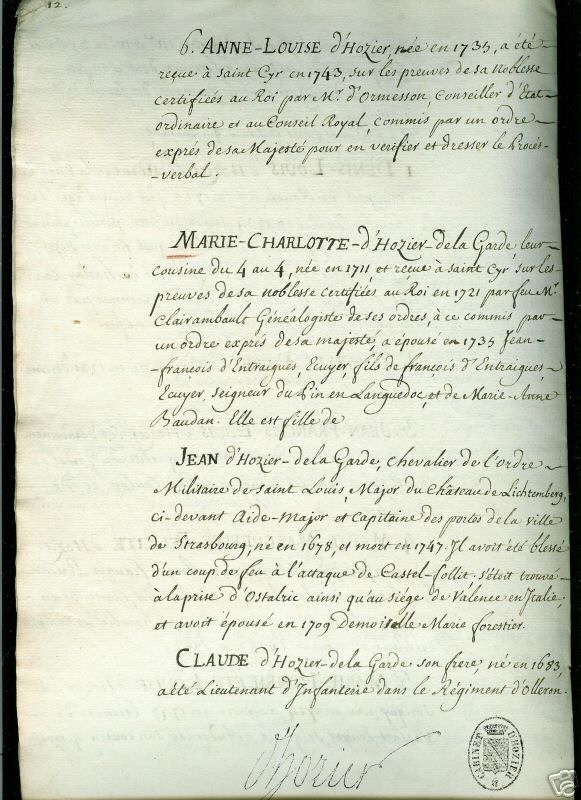 12.
6. ANNE-LOUISE d'Hozier, née en 1735, a été
reçue à saint Cyr en 1743, sur les preuves de sa noblesse
certifiées au Roi par Mr. d'Ormesson, Conseiller d'Etat
ordinaire et au Conseil Royal, commis par un ordre
exprés de sa Majesté pour en verifier et dresser le Procés-
-verbal.
MARIE-CHARLOTTE-d'Hozier-de la Garde leur
cousine du 4 au 4, née en 1711 et reçue à saint Cyr sur les
preuves de sa noblesse certifiées au Roi en 1721 par feu Mr.
Clairambault Généalogiste de ses ordres, à ce commis par
un ordre exprés de sa majesté, a épousé en 1735 Jean-
françois d'Entraigues, Ecuyer, fils de françois d'Entraigues
Ecuyer, seigneur du Pin en Languedoc, et de Marie-Anne
Baudan. Elle est fille de
JEAN d'Hozier-de la Garde, chevalier de l'ordre
Militaire de Saint Louis, Major du Chateau de Lichtemberg,
ci-devant Aide-Major et Capitaine des portes de la ville
de Strasbourg, né en 1678, et mort en 1747. Il avoit été blessé
d'un coup de feu à l'attaque de Castel-follit. s'étoit trouvé
à la prise d'Ostalric ainsi qu'au siége de Valence en Italie,
et avoit épousé en 1709 Demoiselle Marie forestier.
CLAUDE d'Hozier-de la Garde son frere, né en 1683,
a été Lieutenant d'Infanterie dans le Régiment d'Olleron.
d'hozier
CABINET D'HOZIER